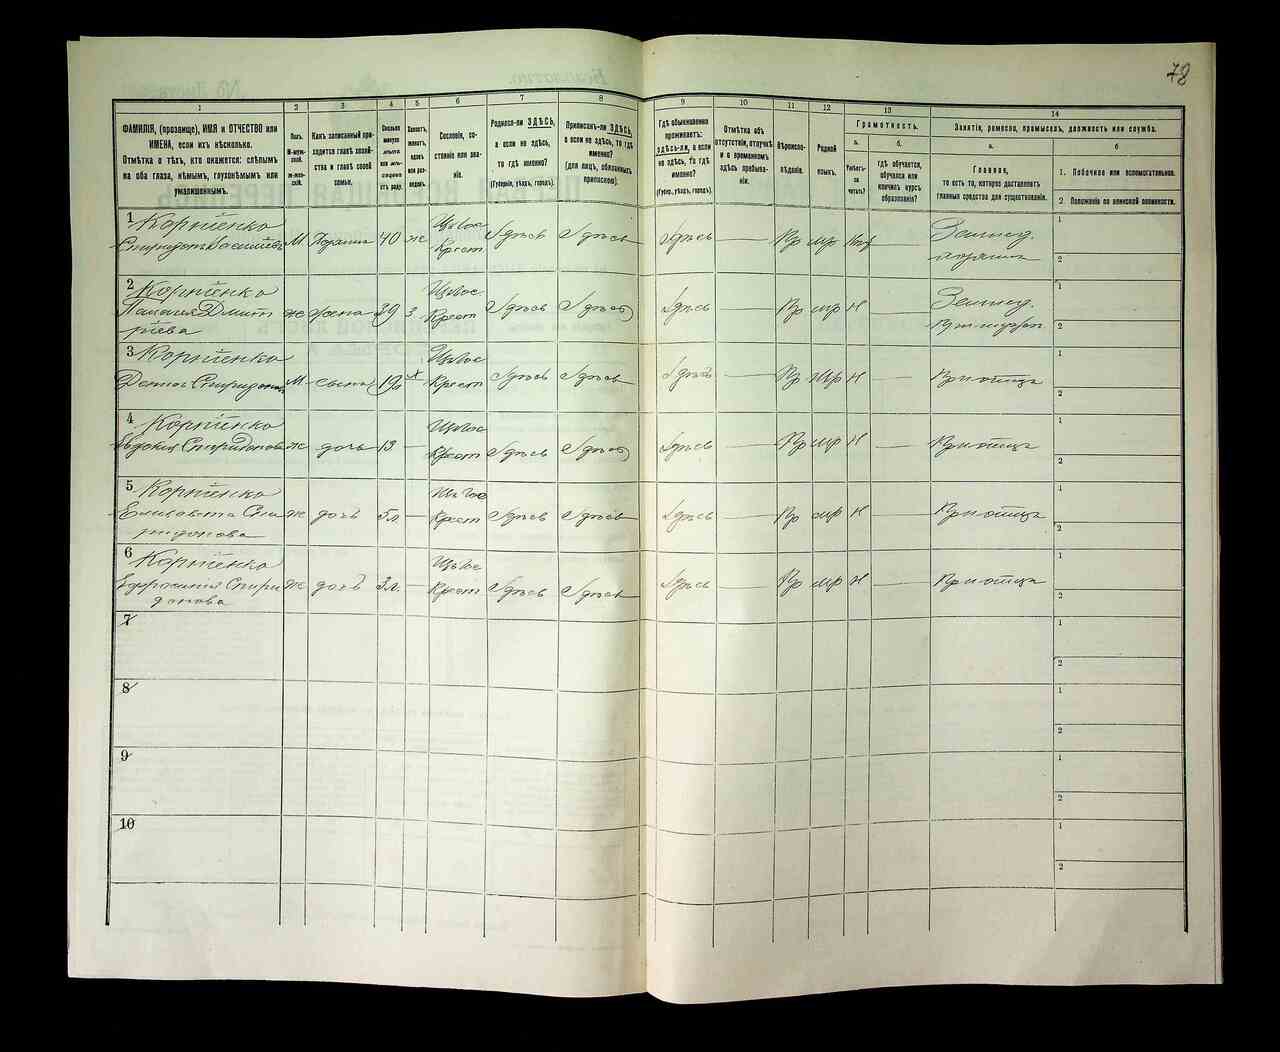 78
1 2 3 4 5 6 7 8 9 10 11 12 13 14
ФАМИЛІЯ, (прозвище), ИМЯ и ОТЧЕСТВО или
ИМЕНА, если ихъ нѣсколько.
Отмѣтка о тѣхъ, кто окажется: слѣпымъ
на оба глаза, нѣмымъ, глухонѣмымъ или
умалишеннымъ.
Полъ.
М-муж-
ской.
Ж-жен-
скій.
Какъ записанный при-
ходится главѣ хозяй-
ства и главѣ своей
семьи.
Сколько
минуло
лѣтъ
или мѣ-
сяцевъ
отъ роду.
Холостъ,
женатъ,
вдовъ
или раз-
веденъ.
Сословіе, со-
стояніе или зва-
ніе.
Родился-ли ЗДѢСЬ,
а если не здѣсь,
то гдѣ именно?
(Губернія, уѣздъ, городъ).
Приписанъ-ли ЗДѢСЬ,
а если не здѣсь, то гдѣ
именно?
(для лицъ, обязанныхъ
припискою).
Гдѣ обыкновенно
проживаетъ:
ЗДѢСЬ-ли, а если
не здѣсь, то гдѣ
именно?
(Губер., уѣздъ, городъ).
Отмѣтка объ
отсутствіи, отлучкѣ
и о временномъ
здѣсь пребыва-
ніи.
Вѣроиспо-
вѣданіе.
Родной
языкъ.
Грамотность.
а.
Умѣетъ-
ли
читать?
б.
гдѣ обучается,
обучался или
кончилъ курсъ
образованія?
Занятія, ремесло, промыселъ, должность или служба.
а.
Главное,
то есть то, которое доставляетъ
главныя средства для существованія.
б
1. Побочное или вспомогательное.
2 Положеніе по воинской повинности.
1 Корніенко
М. 40 ж Крест Здѣсь Здѣсь Здѣсь — Пр мр — Землед.
1
2
2 Корніенко
Дмит ж жена 39 з Крест Здѣсь Здѣсь Здѣсь — Пр мр н — Землед.
ріева
1
2
3 Корніенко
М. сынъ Крест Здѣсь Здѣсь Здѣсь — Пр мр н — При отцѣ
1
2
4 Корніенко
Евдокія Спиридонова ж дочь 13 — Крест Здѣсь Здѣсь Здѣсь — Пр мр н — При отцѣ
1
2
5 Корніенко
Елисавета Спи ж дочь 5 л. — Крест Здѣсь Здѣсь Здѣсь — Пр мр н — При отцѣ
ридонова
1
2
6 Корніенко
Ефросинія Спири ж дочь 3 л. — Крест Здѣсь Здѣсь Здѣсь — Пр мр н — При отцѣ
донова
1
2
7
1
2
8
1
2
9
1
2
10
1
2